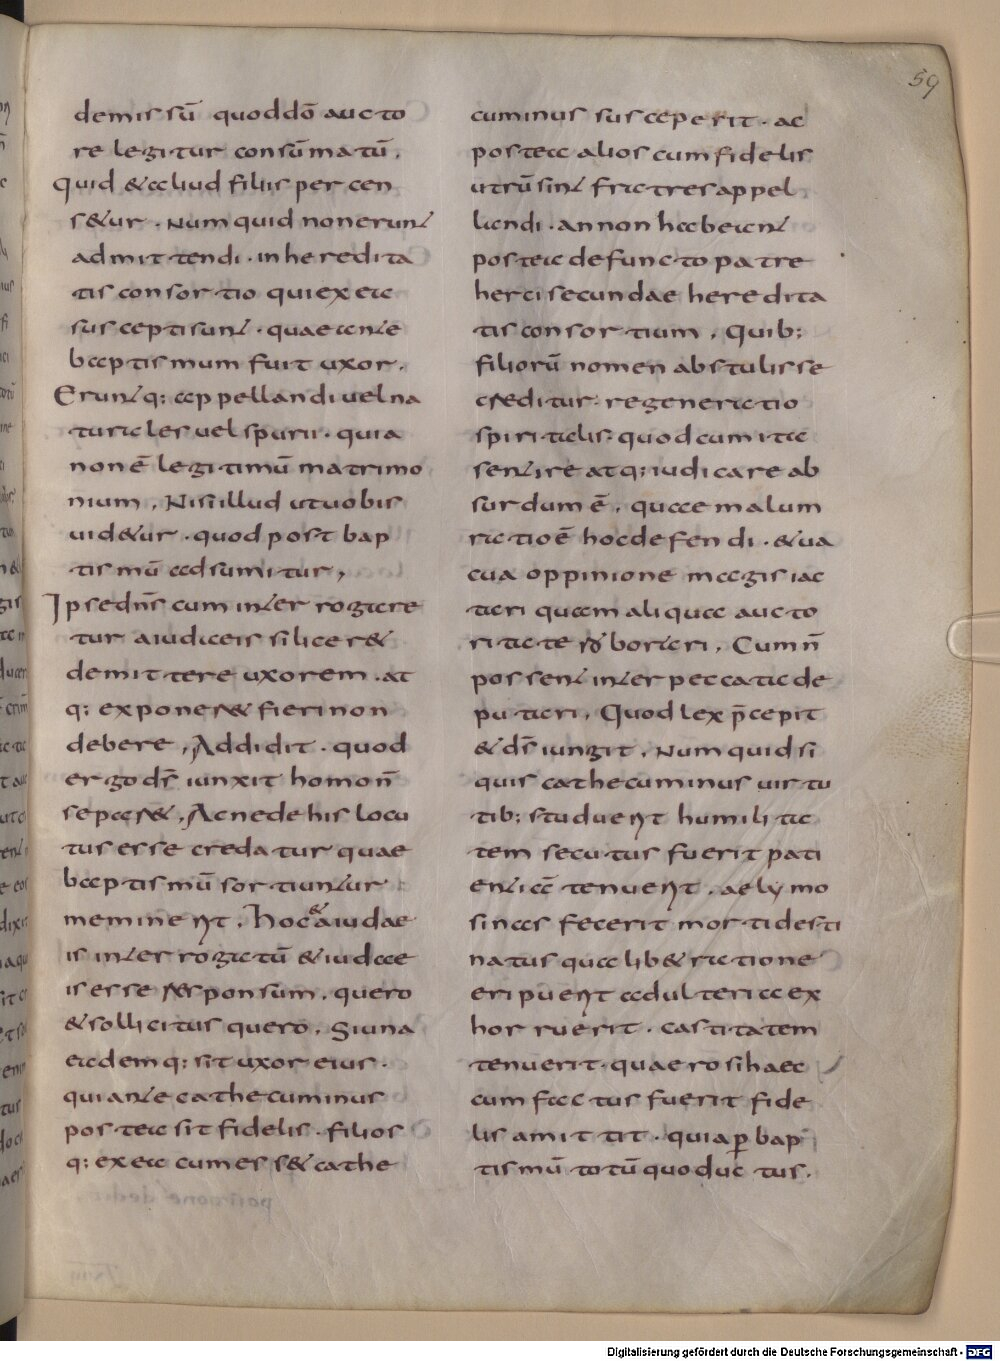 59
demissū quoddōaucto
re legitur consūmatū.
quid &aliud filiis percen
s&ur. Numquid nonerunt
admittendi. inheredita
tis consortio quiexea
susceptisunt. quaeante
baptismum fuit uxor.
Eruntq; appellandi uelna
turales uel spurii. quia
nonē legitimū matrimo
nium. Nisi illud utuobis
uid&ur. quod post bap
tismū adsumitur,
Ipsedn̄s cum interrogare
tur aiudaeis silicer&
demittere uxorem. at
q; expone&fierinon
debere, Addidit. quod
ergo ds̄ iunxit homo n̄
separ&. Acnede his locu
tus esse credatur quae
baptismū sortiuntur
meminerīt. hoc &aiudae
is interrogatū &iudae
is esse responsum. quero
&sollicitus quero, Siuna
eademq; sit uxor eius.
quiante cathecuminus
postea sit fidelis. filios
q; exea cumess& cathe
cuminus susceperit. ac
postea alios cum fidelis
utrū sint fratres appel
landi. an non habeant
postea defuncto patre
herciscundae heredita
tis consortium. Quib;
filiorū nomen abstulisse
creditur. regeneratio
spiritalis. quodcumita
sentire atq; iudicare ab
surdum ē. quae malum
ratio ē hocdefendi. &ua
cua oppinione magis iac
tari quam aliqua aucto
ritate roborari. Cum n̄
possent inter peccata de
putari, Quod lex p̄cepit
&ds̄ iungit. Numquid si
quis cathecuminus uirtu
tib; studuerit humilita
tem secutus fuerit pati
entiā tenuerit. aelymo
sinas fecerit morti desti
natus qua liberatione
eripuerit adulteria ex
horruerit. castitatem
tenuerit. quaero sihaec
cum factus fuerit fide
lis amittit. quia p bap
tismū totū quod uctus.
Digitalisierung gefördert durch die Deutsche Forschungsgemeinschaft - DFG